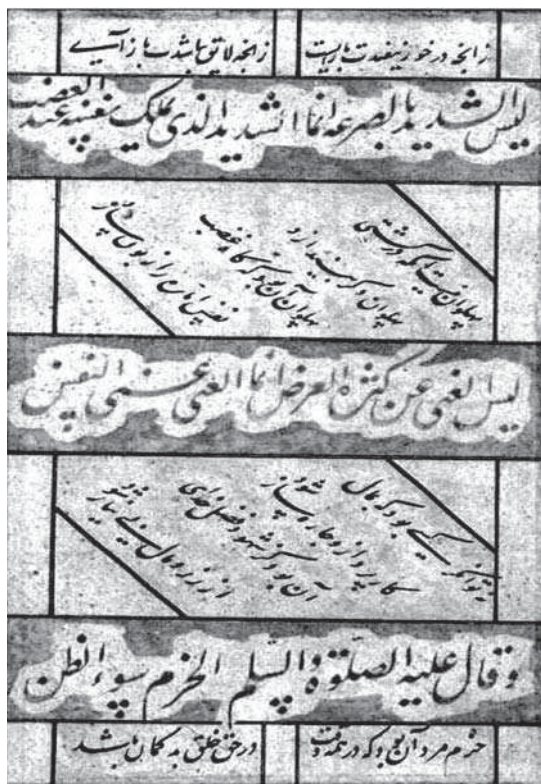 زانچه در خور نیفتدت باز ایست
زانچه لایق نباشدت باز آی
لیس الشدید بالصرعه انما الشدید الذی یملک نفسه عند الغضب
پهلوان نیست آنکه در کشتی
پهلوان دگر بیندازد
پهلوان آن بود که گاه غضب
نفس اماره را زبون سازد
لیس الغنی عن کثرة العرض انما الغنی غنی النفس
نه توانگر کسی بود که بمال
کار پرداز و چاره ساز شود
آن بود کز شهود فضل خدای
از زر و مال بی نیاز شود
وقال علیه الصلوة والسلم الحزم سوء الظن
حزم مرد آن بود که در همه وقت
در حق خلق بد گمان باشد